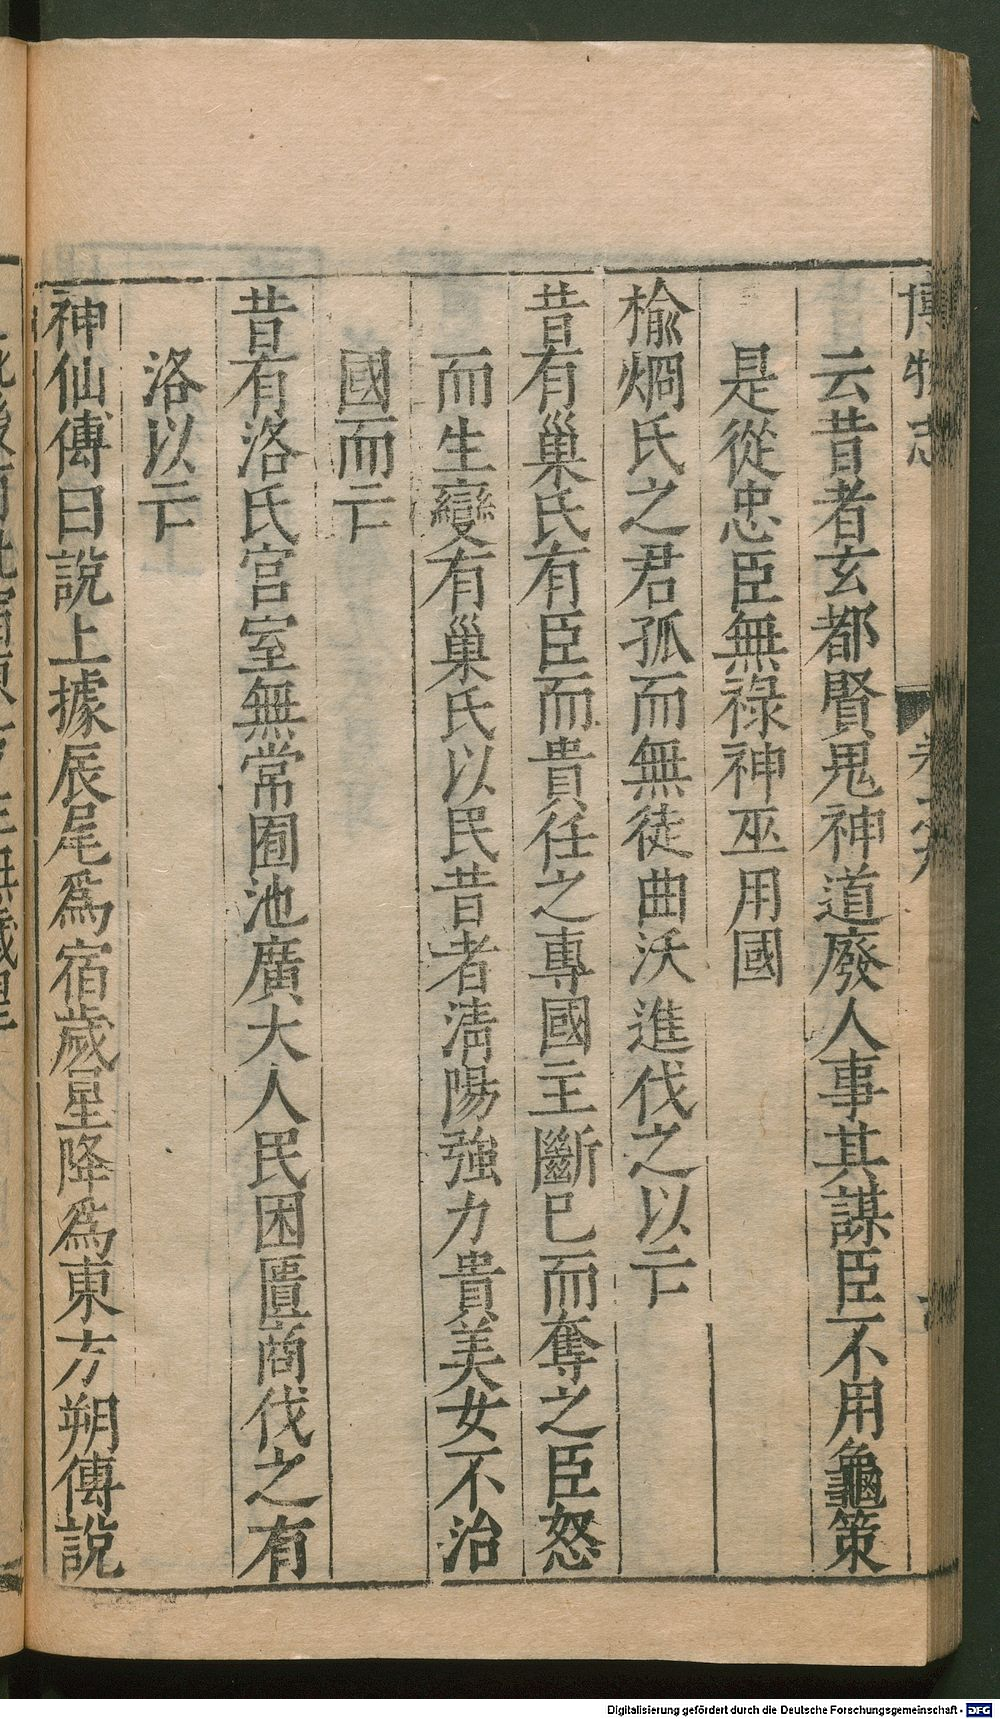 博物志
卷之九
云昔者玄都賢鬼神道廢人事其謀臣不用龜策
是從忠臣無祿神巫用國
榆烱氏之君孤而無徒曲沃進伐之以亡
昔有巢氏有臣而貴任之專國主斷已而奪之臣怒
而生變有巢氏以民昔者清陽強力貴美女不治
國而亡
昔有洛氏宫室無常囿池廣大人民困匱商伐之有
洛以亡
神仙傳曰說上據辰尾爲宿歲星降爲東方朔傳說
Digitalisierung gefördert durch die Deutsche Forschungsgemeinschaft - DFG